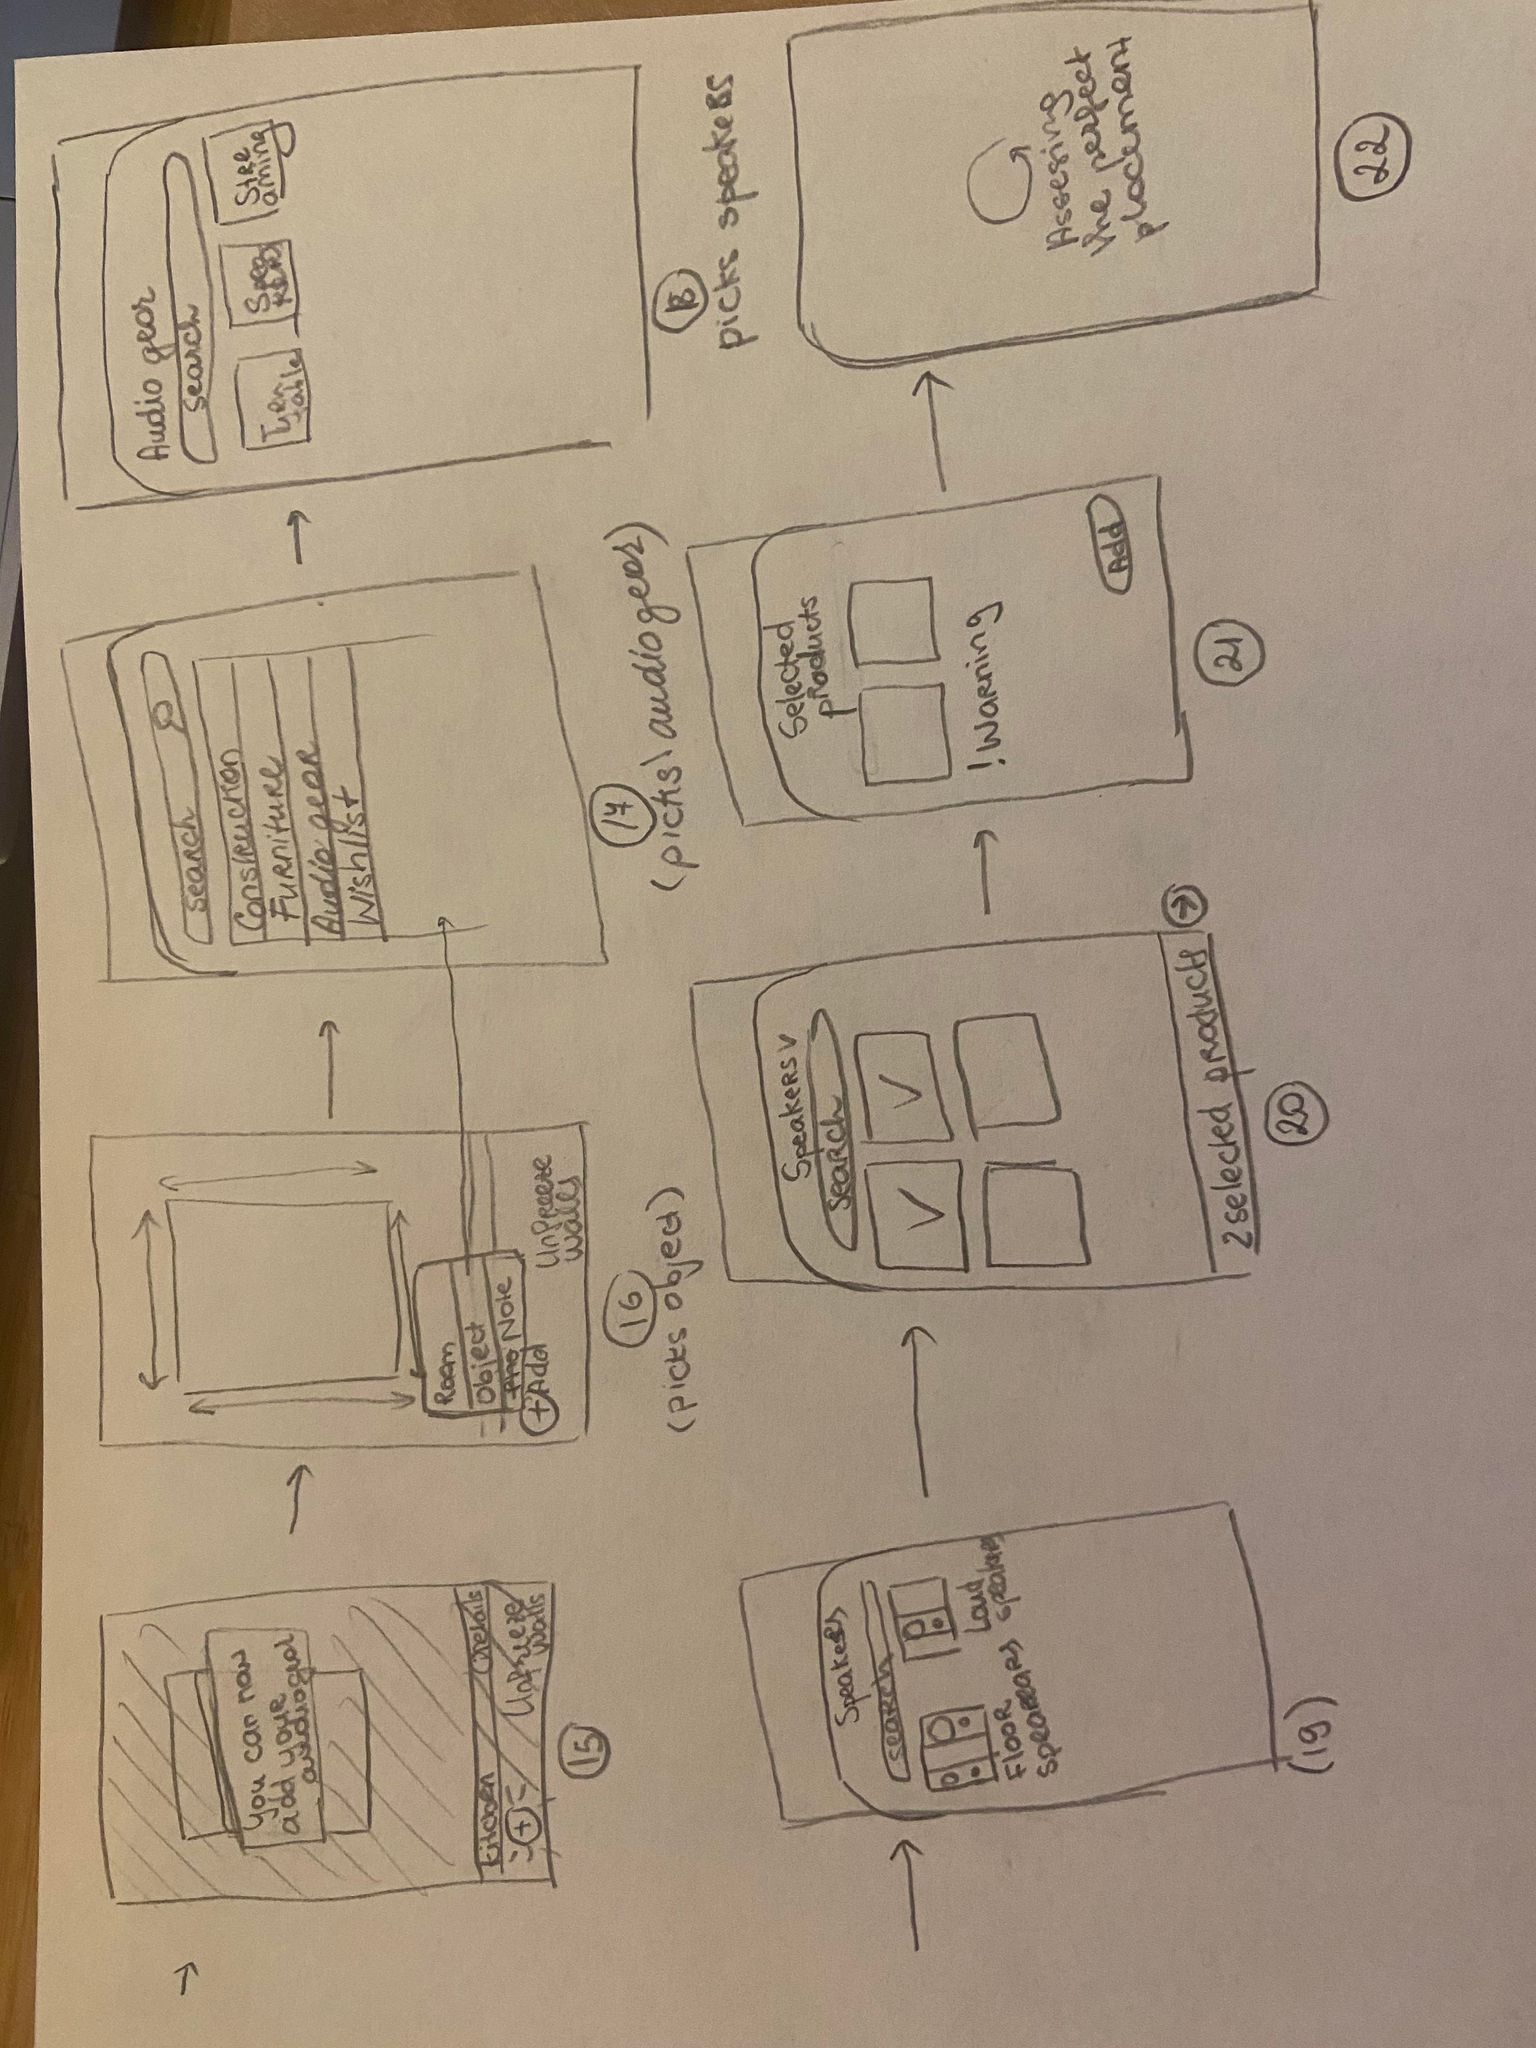 You can now
add your
audiogear
Kitchen
Details
+
Unfreeze
walls
15
Room
Object
Note
+ Add
Unfreeze
walls
16
(picks object)
Search
Construction
Furniture
Audio gear
Wishlist
17
(picks audiogear)
Audio gear
Search
Turn
table
Spea
kers
Stre
aming
18
picks speakers
Speakers
search
Floor
Loud
speakers
(19)
Speakers
Search
2 selected products
20
Selected
products
! Warning
Add
21
Assesing
the perfect
placement
22